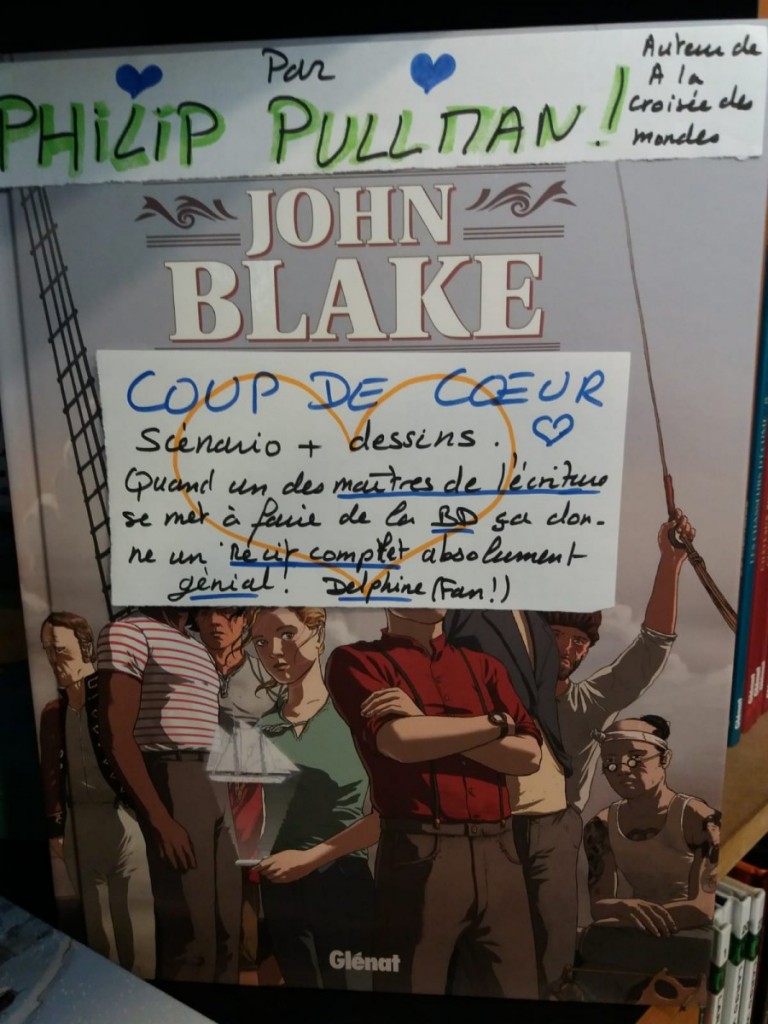 Par
PHILIP PULLMAN!
Auteur de
A la
croisée des
mondes
JOHN
BLAKE
COUP DE CŒUR
Scénario + dessins.
Quand un des maîtres de l'écriture
se met à faire de la BD ça don-
ne un récit complet absolument
génial! Delphine (Fan!)
Glénat